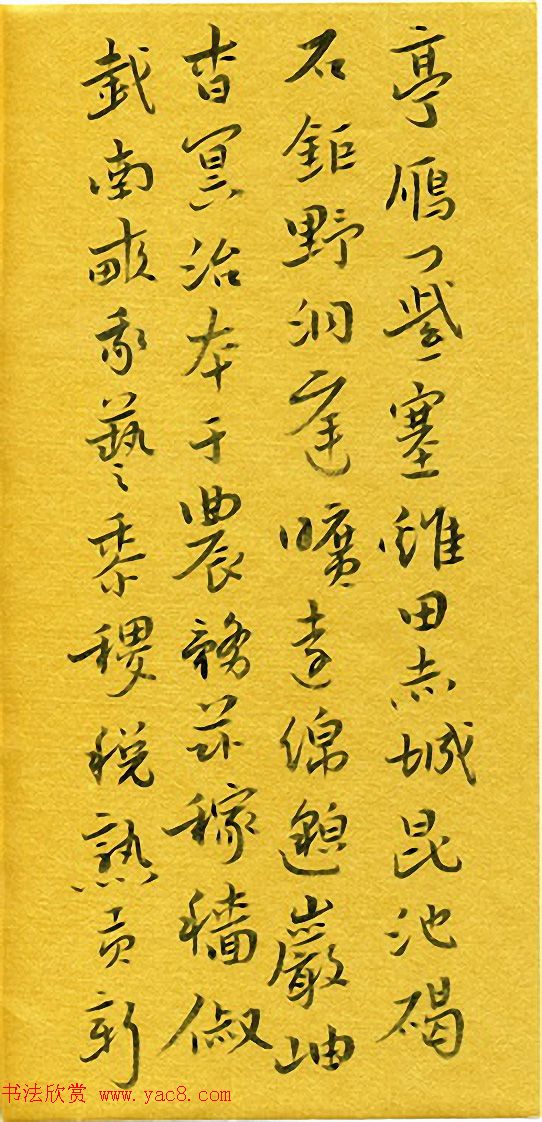 亭雁门紫塞雞田赤城昆池碣
石鉅野洞庭曠遠綿邈巖岫
杳冥治本于農務茲稼穡俶
載南畝我藝黍稷稅熟貢新
书法欣赏 www.yac8.com